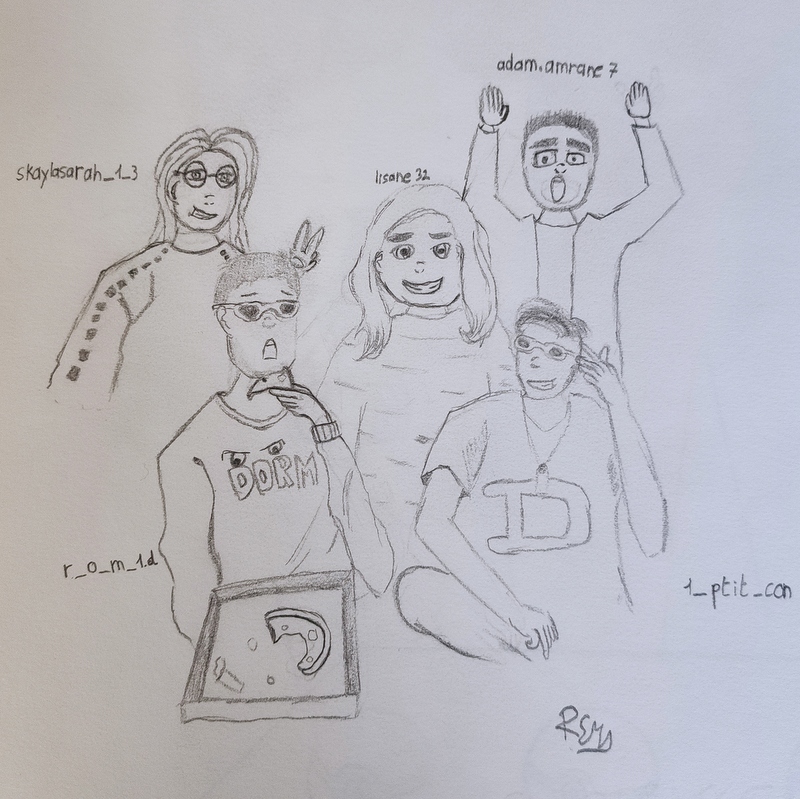 adam.amrane 7
skaylasarah_1_3
lisane 32
DORM
D
r_o_m_1.d
1_ptit_con
REMY